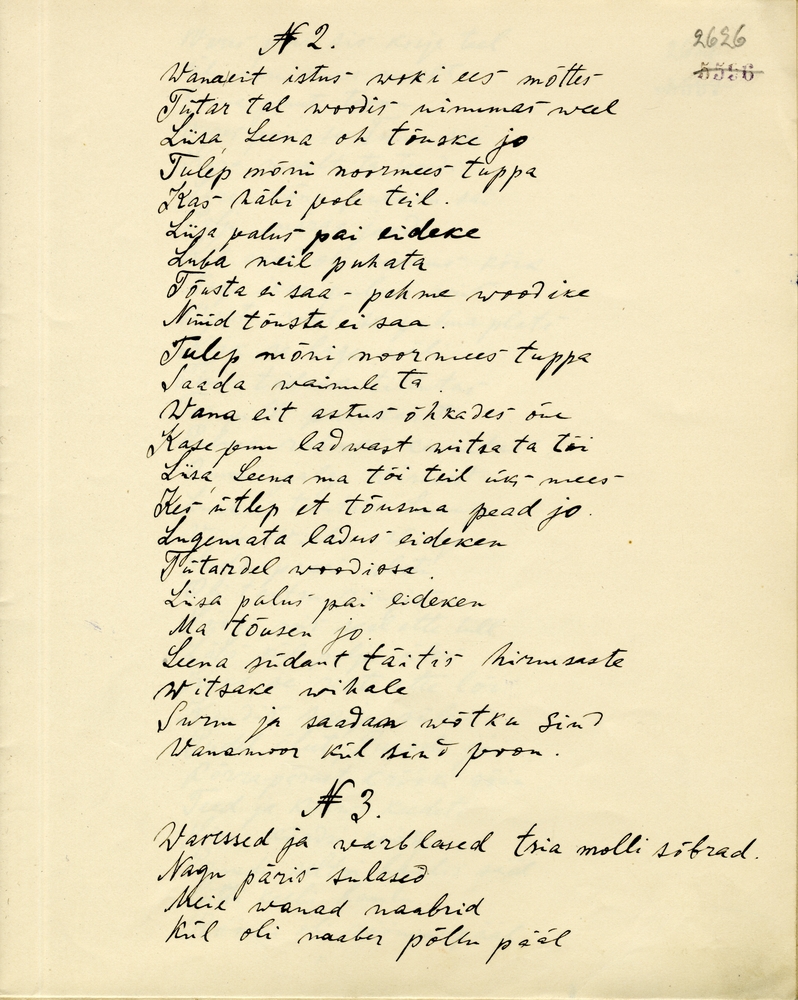 2626
5596
№ 2.
Wanaeit istus woki ees mõttes
Tütar tal woodis uinumas weel
Liisa, Leena oh tõuske jo
Tulep mõni noormees tuppa
Kas häbi pole teil.
Liisa palus pai eideke
Luba meil puhata
Tõusta ei saa - pehme woodike
Nüüd tõusta ei saa.
Tulep mõni noormees tuppa
Saada waimule ta.
Wana eit astus õhkades õue
Kase puu ladwast witsa ta tõi
Liisa, Leena ma tõi teil üks mees
Kes ütlep et tõusma pead jo.
Lugemata ladus eideken
Tütardel woodissa.
Liisa palus pai eideken
Ma tõusen jo.
Leena südant täitis hirmsaste
Witsake wihale
Surm ja saadan wõtku sind
Wanamoor kül sind poon.
№ 3.
Waressed ja warblased molli sõbrad.
Nagu päris sulased
Meie wanad naabrid
Kül oli naaber põllu pääl